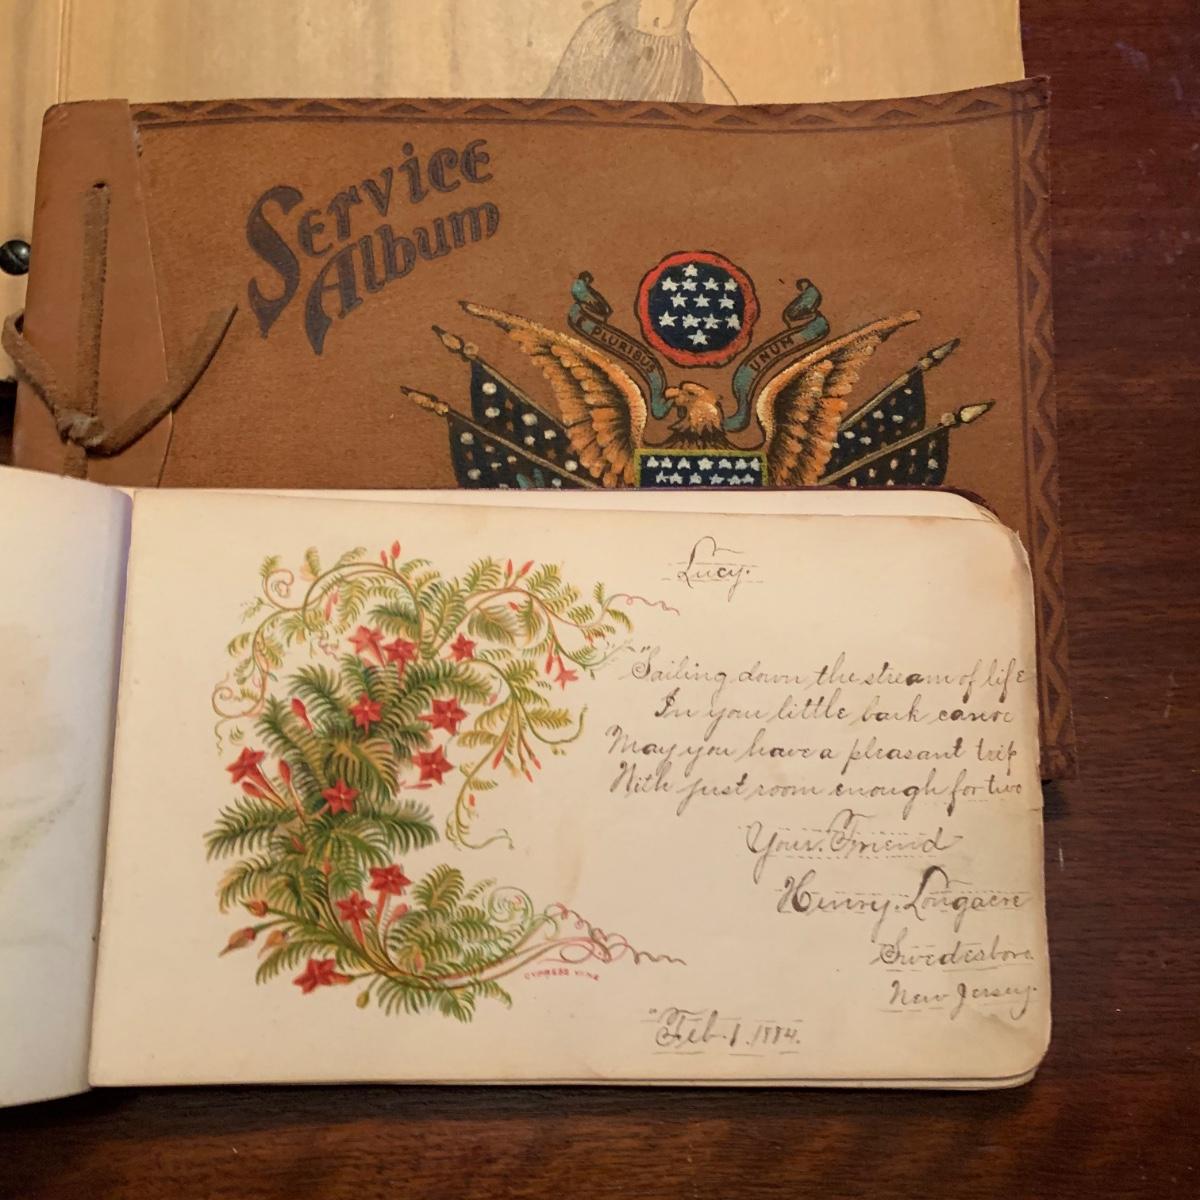 Service
Album
E PLURIBUS UNUM
Lucy.
"Sailing down the stream of life
In your little bark canoe
May you have a pleasant trip
With just room enough for two
Your Friend
Henry Longacre
Swedesboro
New Jersey.
CYPRESS VINE
"Feb. 1. 1884.